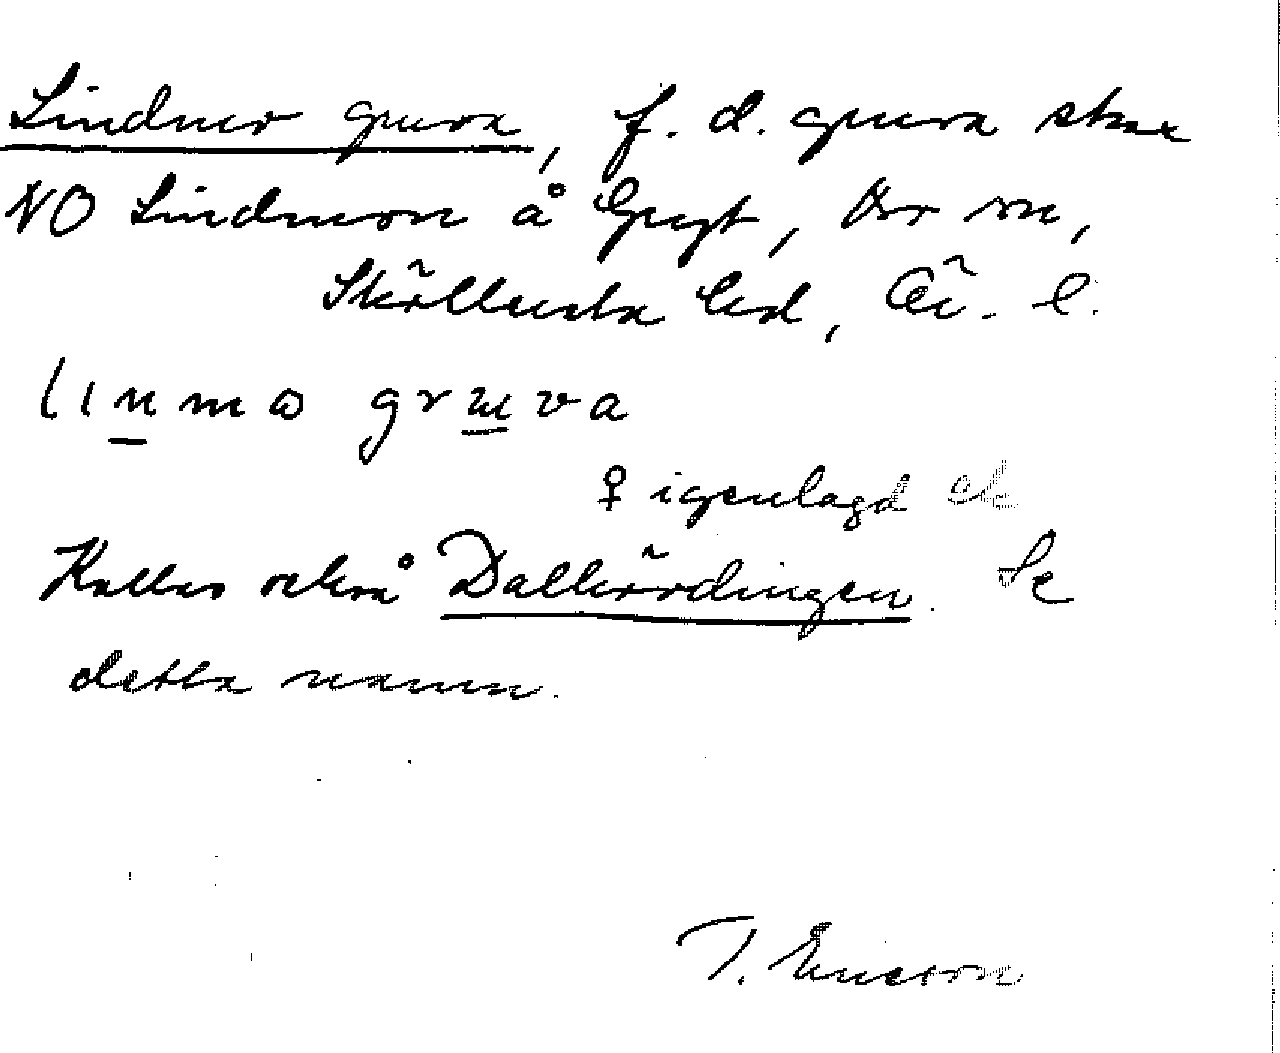 Lindmo gruva, f. d. gruva strax
NO Lindmon å Gryt, Ör sn,
Sköllersta hd, Öre. l.
lınmɷ grʉva
♀ igenlagd
Kallas också Dalkärrdingen. Se
detta namn.
T. Ericson